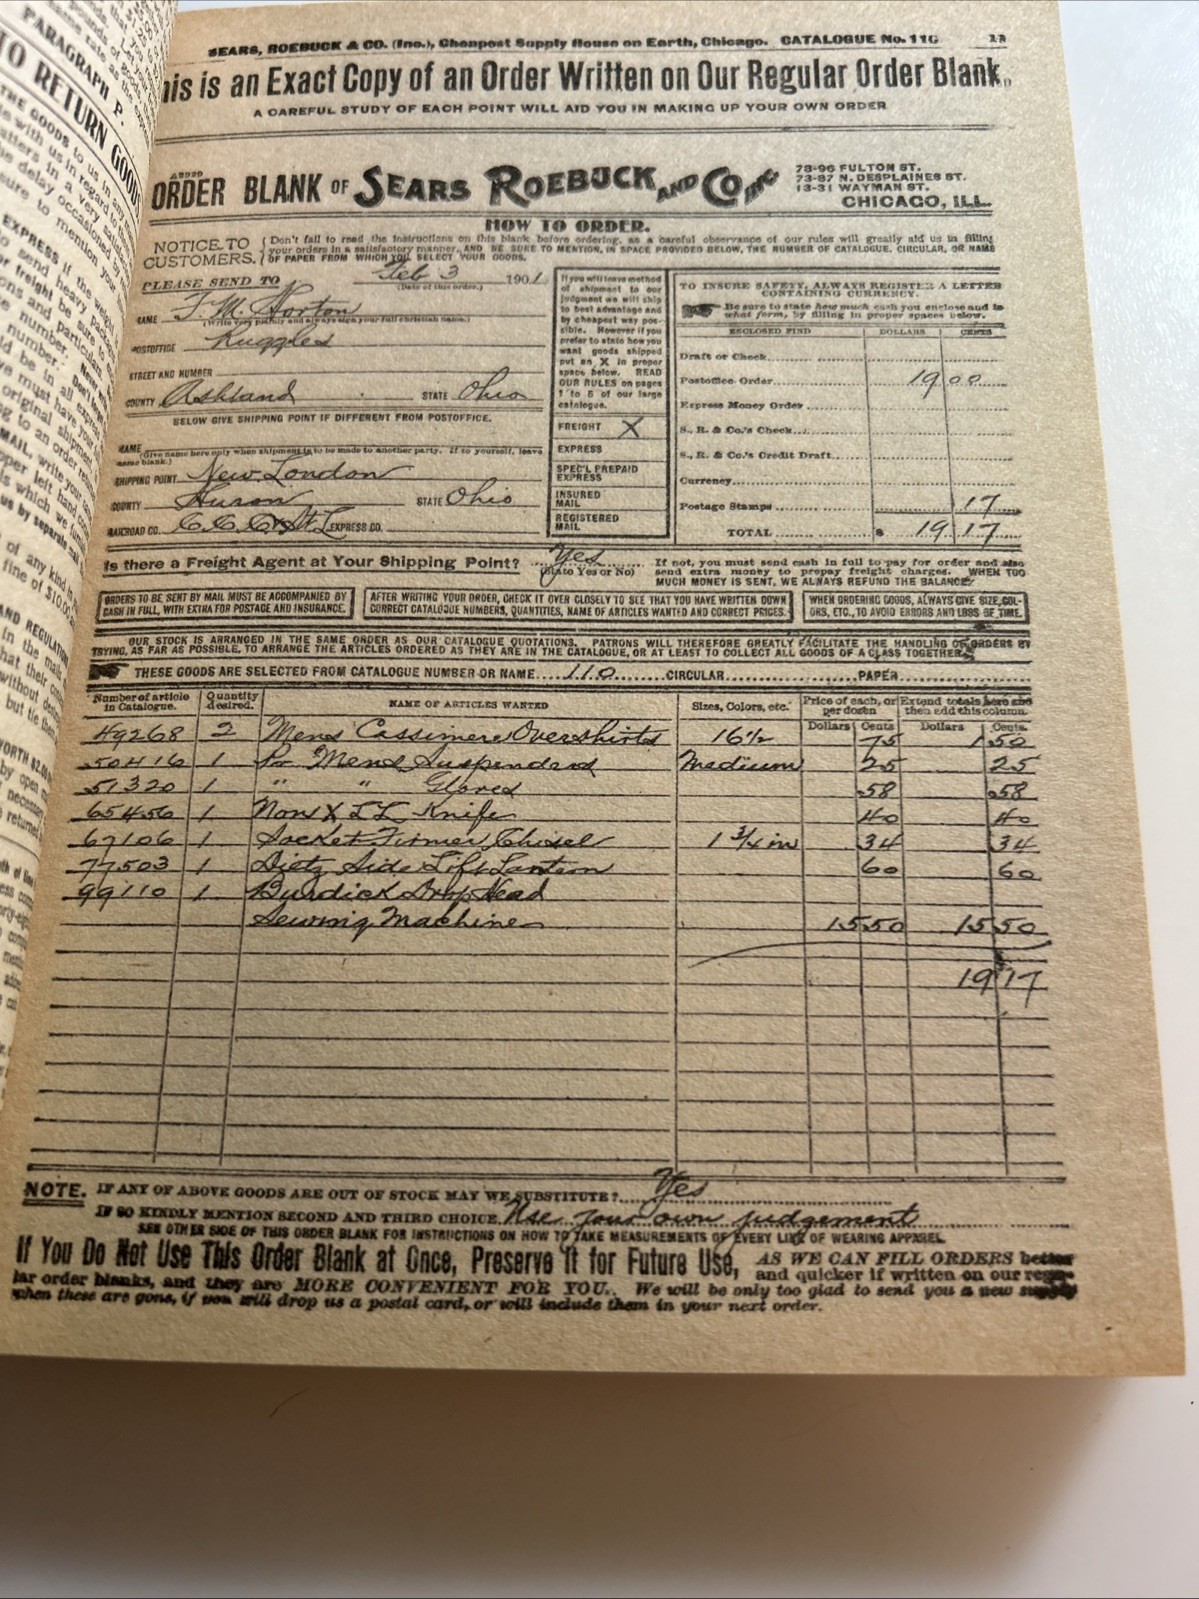 PARAGRAPH P.
TO RETURN GOODS
SEARS, ROEBUCK & CO. (Inc.), Cheapest Supply House on Earth, Chicago. CATALOGUE No. 110
his is an Exact Copy of an Order Written on Our Regular Order Blank
A CAREFUL STUDY OF EACH POINT WILL AID YOU IN MAKING UP YOUR OWN ORDER
ORDER BLANK OF SEARS ROEBUCK AND CO INC
78-96 FULTON ST.
73-87 N. DESPLAINES ST.
13-31 WAYMAN ST.
CHICAGO, ILL.
HOW TO ORDER.
NOTICE TO CUSTOMERS.
Don't fail to read the instructions on this blank before ordering, as a careful observance of our rules will greatly aid us in filling
your orders in a satisfactory manner, AND BE SURE TO MENTION, IN SPACE PROVIDED BELOW, THE NUMBER OF CATALOGUE, CIRCULAR, OR NAME
OF PAPER FROM WHICH YOU SELECT YOUR GOODS.
PLEASE SEND TO Feb 3 1901
(Date of this order.)
NAME F. M. Horton
(Write very plainly and always sign your full christian name.)
POSTOFFICE Ruggles
STREET AND NUMBER
COUNTY Ashland STATE Ohio
BELOW GIVE SHIPPING POINT IF DIFFERENT FROM POSTOFFICE.
NAME
(Give name here only when shipment is to be made to another party. If to yourself, leave
name blank.)
SHIPPING POINT New London
COUNTY Huron STATE Ohio
RAILROAD CO. C.C.C. & St. L EXPRESS CO.
If you will leave method
of shipment to our
judgment we will ship
to best advantage and
by cheapest way pos-
sible. However if you
prefer to state how you
want goods shipped
put an X in proper
space below. READ
OUR RULES on pages
1 to 5 of our large
catalogue.
FREIGHT X
EXPRESS
SPEC'L PREPAID
EXPRESS
INSURED
MAIL
REGISTERED
MAIL
TO INSURE SAFETY, ALWAYS REGISTER A LETTER
CONTAINING CURRENCY.
Be sure to state how much cash you enclose and in
what form, by filling in proper spaces below.
ENCLOSED FIND DOLLARS CENTS
Draft or Check
Postoffice Order 19 00
Express Money Order
S., R. & Co.'s Check
S., R. & Co.'s Credit Draft
Currency
Postage Stamps 17
TOTAL $ 19 17
Is there a Freight Agent at Your Shipping Point? Yes
(State Yes or No)
If not, you must send cash in full to pay for order and also
send extra money to prepay freight charges. WHEN TOO
MUCH MONEY IS SENT, WE ALWAYS REFUND THE BALANCE.
ORDERS TO BE SENT BY MAIL MUST BE ACCOMPANIED BY
CASH IN FULL, WITH EXTRA FOR POSTAGE AND INSURANCE.
AFTER WRITING YOUR ORDER, CHECK IT OVER CLOSELY TO SEE THAT YOU HAVE WRITTEN DOWN
CORRECT CATALOGUE NUMBERS, QUANTITIES, NAME OF ARTICLES WANTED AND CORRECT PRICES.
WHEN ORDERING GOODS, ALWAYS GIVE SIZE, COL-
ORS, ETC., TO AVOID ERRORS AND LOSS OF TIME.
OUR STOCK IS ARRANGED IN THE SAME ORDER AS OUR CATALOGUE QUOTATIONS. PATRONS WILL THEREFORE GREATLY FACILITATE THE HANDLING OF ORDERS BY
TRYING, AS FAR AS POSSIBLE, TO ARRANGE THE ARTICLES ORDERED AS THEY ARE IN THE CATALOGUE, OR AT LEAST TO COLLECT ALL GOODS OF A CLASS TOGETHER.
THESE GOODS ARE SELECTED FROM CATALOGUE NUMBER OR NAME 110 CIRCULAR PAPER
Number of article in Catalogue. Quantity desired. NAME OF ARTICLES WANTED Sizes, Colors, etc. Price of each, or per dozen Extend totals here and then add this column.
Dollars Cents Dollars Cents.
49268 2 Mens Cassimere Overshirts 16½ 75 1 50
50416 1 Pr Mens Suspenders Medium 25 25
51320 1 " " Gloves 58 58
65456 1 Non X LL Knife 40 40
67106 1 Socket Firmer Chisel 1 ¾ in 34 34
77503 1 Dietz Side Lift Lantern 60 60
99110 1 Burdick Drop Head
Sewing Machine 15 50 15 50
19 17
NOTE. IF ANY OF ABOVE GOODS ARE OUT OF STOCK MAY WE SUBSTITUTE? Yes
IF SO KINDLY MENTION SECOND AND THIRD CHOICE. Use your own judgement
SEE OTHER SIDE OF THIS ORDER BLANK FOR INSTRUCTIONS ON HOW TO TAKE MEASUREMENTS OF EVERY LINE OF WEARING APPAREL
If You Do Not Use This Order Blank at Once, Preserve It for Future Use, AS WE CAN FILL ORDERS better
and quicker if written on our regu-
lar order blanks, and they are MORE CONVENIENT FOR YOU. We will be only too glad to send you a new supply
when these are gone, if you will drop us a postal card, or will include them in your next order.